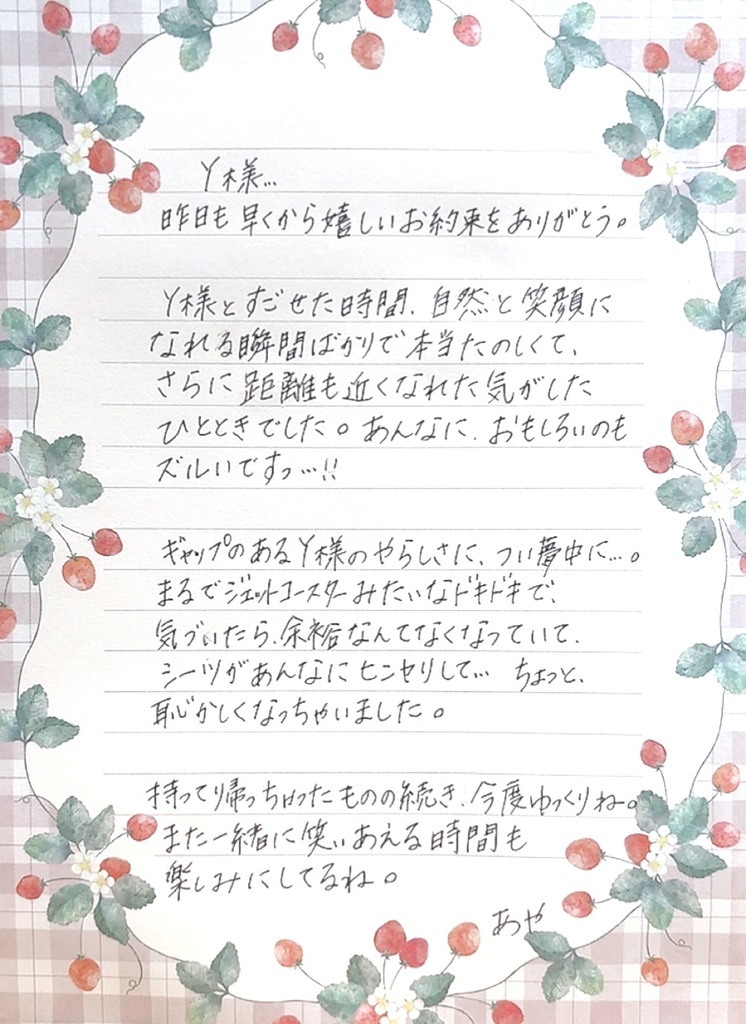 Y様…
昨日も早くから嬉しいお約束をありがとう。
Y様とすごせた時間、自然と笑顔に
なれる瞬間ばかりで本当たのしくて、
さらに距離も近くなれた気がした
ひとときでした。あんなに、おもしろいのも
ズルいですっ…!!
ギャップのあるY様のやらしさに、つい夢中に…。
まるでジェットコースターみたいなドキドキで、
気づいたら、余裕なんてなくなっていて、
シーツがあんなにヒンヤリして… ちょっと、
恥じかしくなっちゃいました。
持って帰っちゃったものの続き、今度ゆっくりね。
また一緒に笑いあえる時間も
楽しみにしてるね。
あや